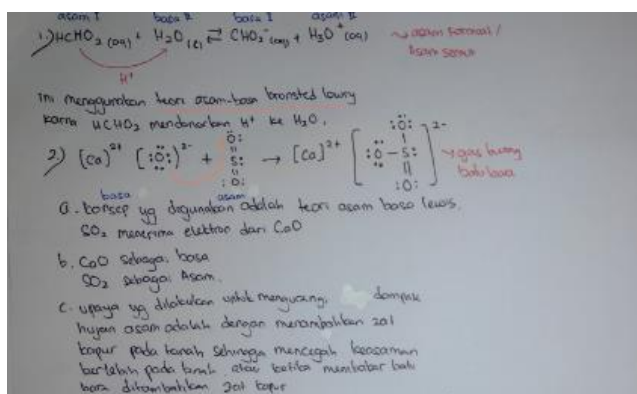 asam I basa II basa I asam II
1.) HCHO₂ (aq) + H₂O (l) ⇄ CHO₂⁻ (aq) + H₃O⁺ (aq) → asam format / asam semut
H⁺
ini menggunakan teori asam-basa bronsted lowry
karna HCHO₂ mendonorkan H⁺ ke H₂O.
2.) [Ca]²⁺ [:Ö:]²⁻ + :O: = S: = :O: → [Ca]²⁺ [:O: :O – S: :O:]²⁻ → gas buang batu bara
basa asam
a. konsep yg digunakan adalah teori asam basa lewis.
SO₂ menerima elektron dari CaO
b. CaO sebagai basa
SO₂ sebagai Asam.
c. upaya yg dilakukan untuk mengurangi dampak
hujan asam adalah dengan menambahkan zat
kapur pada tanah sehingga mencegah keasaman
berlebih pada tanah. atau ketika membakar batu
bara ditambahkan zat kapur